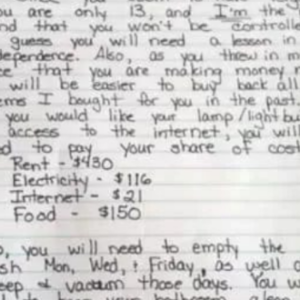 ou are only 13, and I'm the
nd that you won't be controlle
guess you will need a lesson in
dependence. Also, as you threw in m
ce that you are making money n
will be easier to buy back all
ems I bought for you in the past.
you would like your lamp/lightbu
access to the internet, you will
d to pay your share of cost
Rent - $430
Electricity - $116
Internet - $21
Food - $150
o, you will need to empty the
sh Mon, Wed, & Friday, as well a
eep & vacuum those days. You w